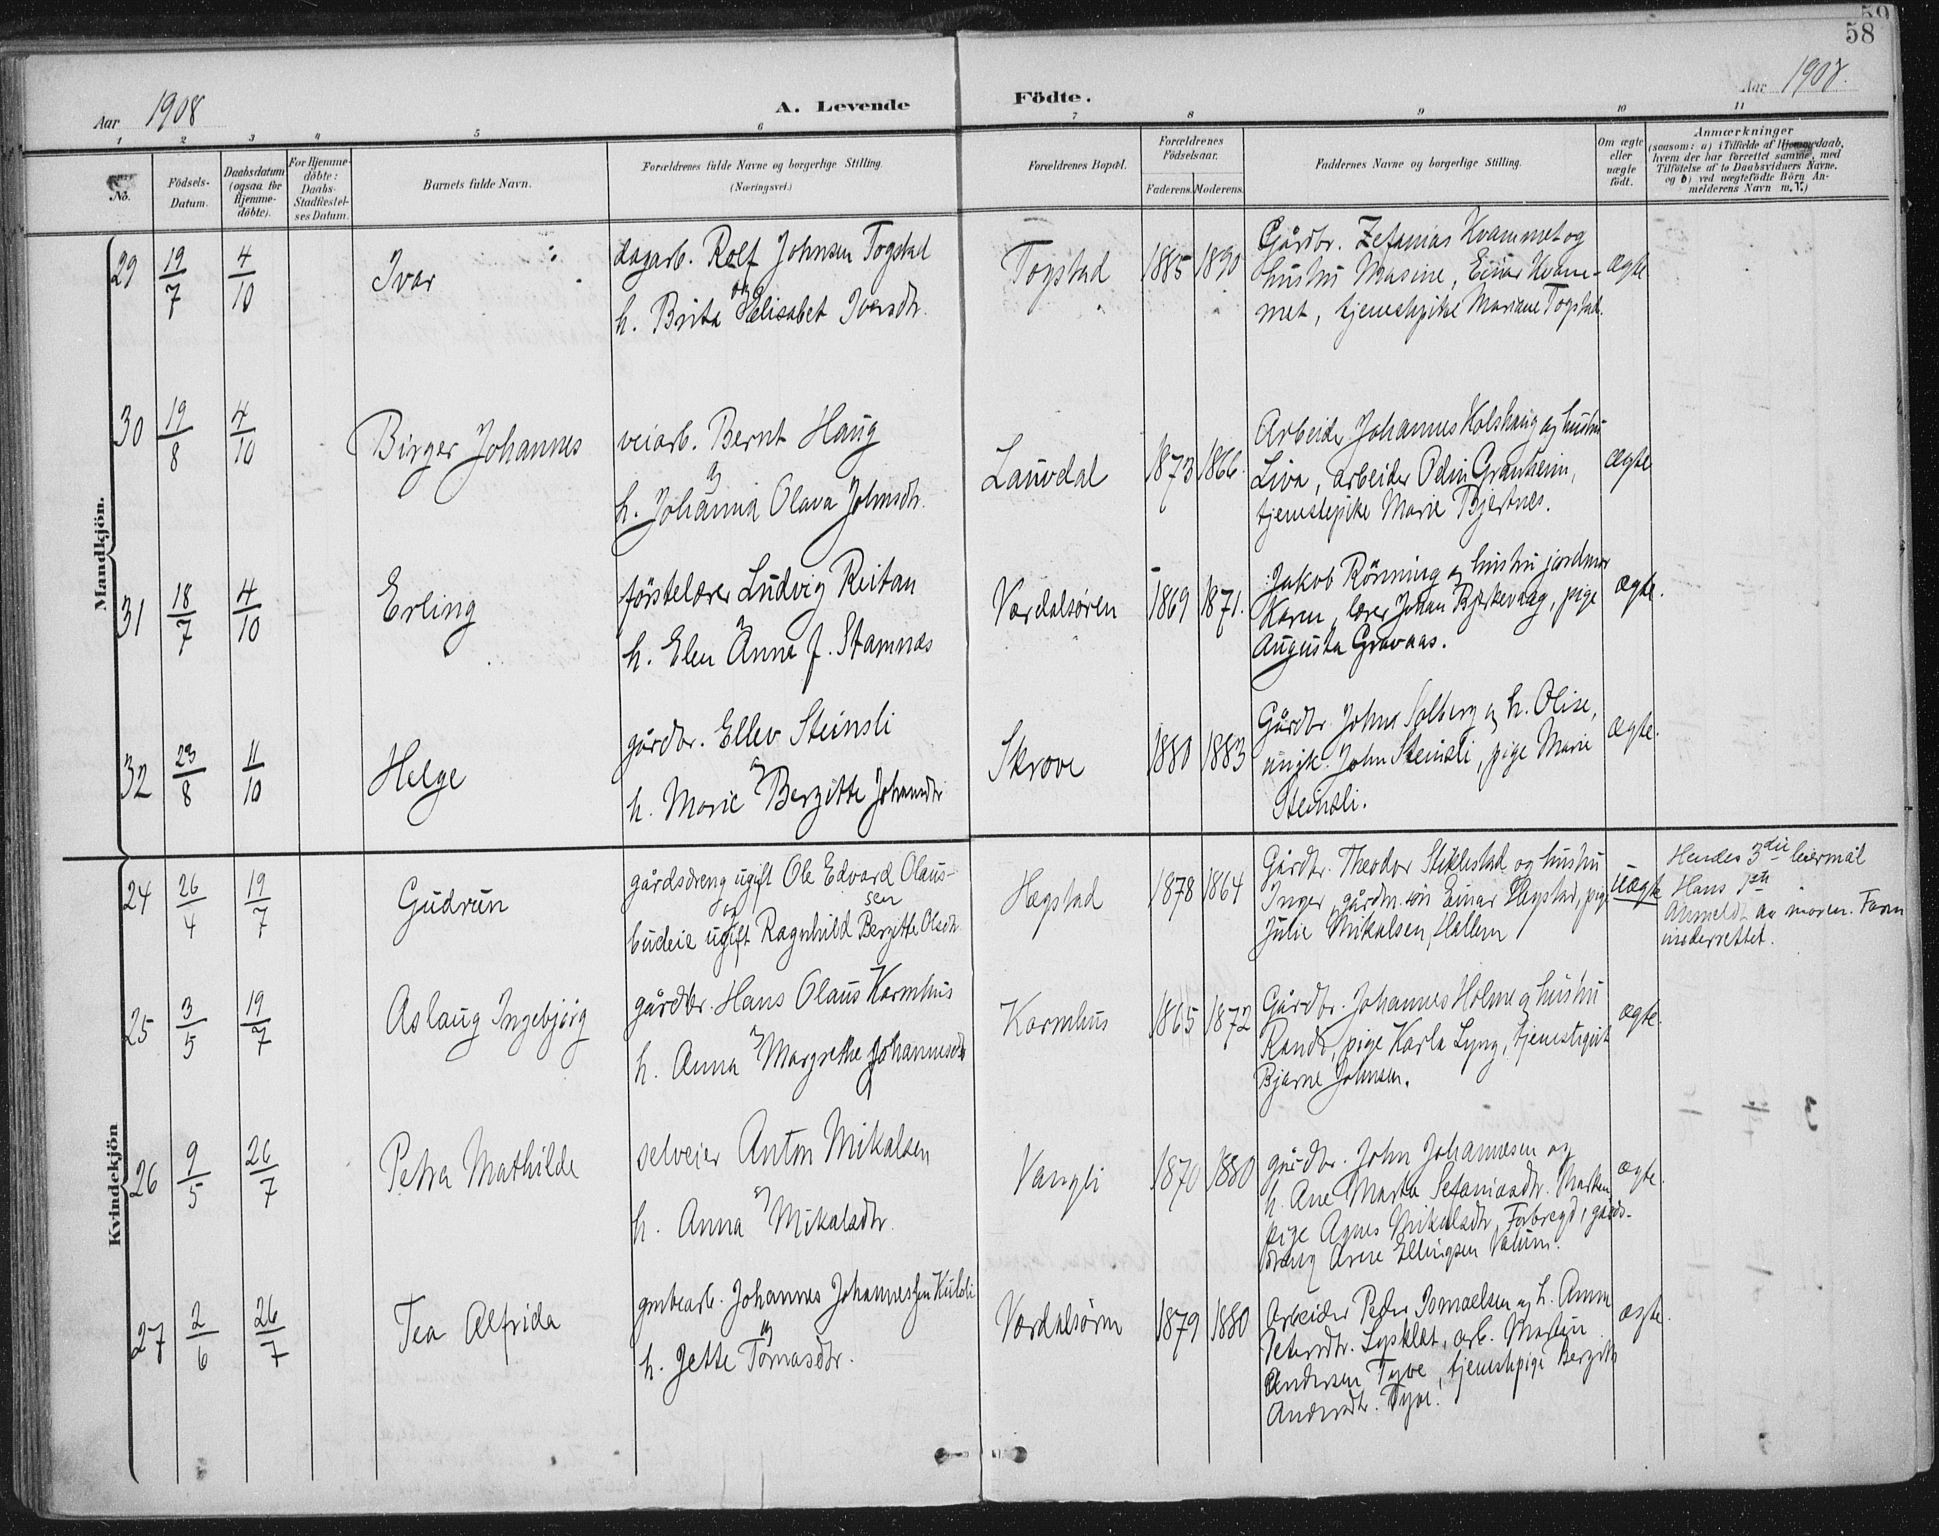 59
58
Aar 1908
A. Levende
Födte.
Aar 1908.
1 2 3 4 5 6 7 8 9 10 11
No.
Födsels-
Datum.
Daabsdatum
(ogsaa for
Hjemme-
döbte).
For Hjemme-
döbte:
Daabs-
Stadfæstel-
ses Datum.
Barnets fulde Navn.
Forældrenes fulde Navne og borgerlige Stilling.
(Næringsvei.)
Forældrenes Bopæl.
Forældrenes
Födselsaar.
Faderens. Moderens.
Faddernes Navne og borgerlige Stilling.
Om ægte
eller
uægte
födt.
Anmærkninger
(saasom: a) i Tilfælde af Hjemmedaab,
hvem der har forrettet samme, med
Tilföielse af to Daabsvidners Navne.
og b) ved uægtefödte Börn An-
melderens Navn m. V.)
Mandkjön.
29 19/7 4/10 Ivar
dagarb. Rolf Johnsen Togstad
og
h. Brita Elisabet Iversdtr.
Togstad 1885 1890
Gårdbr. Zefanias Kvammet og
hustru Masine, Einar Kvam-
met, tjenestepike Mariane Togstad.
ægte
30 19/8 4/10 Birger Johannes
veiarb. Bernt Haug
og
h. Johanna Olava Johnsdtr.
Lauvdal 1873 1866.
Arbeider Johannes Kolshaug og hustru
Liva, arbeider Odin Granheim,
tjenestepike Marie Bjertnes.
ægte
31 18/7 4/10 Erling
förstelærer Ludvig Reitan
og
h. Elen Anna f. Stamnæs
Værdalsören 1869 1871.
Jakob Rönning og hustru jordmor
Karen, lærer Johan Bjerkevaag, pige
Augusta Gravaas.
ægte.
32 23/8 11/10 Helge
gårdbr. Ellev Steinsli
og
h. Marie Bergitte Johansdtr
Skrove 1880 1883
Gårdbr. Johns Solberg og h. Olise,
ungk. John Steinsli, pige Marie
Steinsli.
ægte.
Kvindekjön
24 26/4 19/7 Gudrun
gårdsdreng ugift Ole Edvard Olaus-
sen
og
budeie ugift Ragnhild Bergitte Olsdtr.
Hegstad 1878 1864
Gårdbr. Theodor Stiklestad og hustru
Inger, gårdm. sön Einar Hegstad, pige
Julie Mikalsen, Hallem
uægte
Hendes 3die leiermål
Hans 1ste
Anmeldt av moren. Faren
underrettet.
25 3/5 19/7 Aslaug Ingebjörg
gårdbr. Hans Olaus Karmhus
og
h. Anna Margrethe Johannesdtr
Karmhus 1865 1872
Gårdbr. Johannes Holme og hustru
Randi, pige Karla Lyng, tjenestegut
Bjarne Johnsen.
ægte.
26 9/5 26/7 Petra Mathilde
selveier Anton Mikalsen
og
h. Anna Mikalsdtr.
Vangli 1870 1880
gårdbr. John Johannesen og
h. Ane Marta Sefaniasdtr.
pige Agnes Mikalsdtr, Forbregd, gårds-
dreng Arne Ellingsen Valum.
ægte.
27 2/6 26/7 Tea Alfrida
grubearb. Johannes Johannessen Kuldli
og
h. Jette Tomasdtr.
Værdalsören 1879 1880
Arbeider Peder Ismaelsen og h. Anna
Petersdtr. Lysklet, arb. Martin
Andersen Tyve, tjenestepige Bergitte
Andersdtr. Tyve.
ægte.